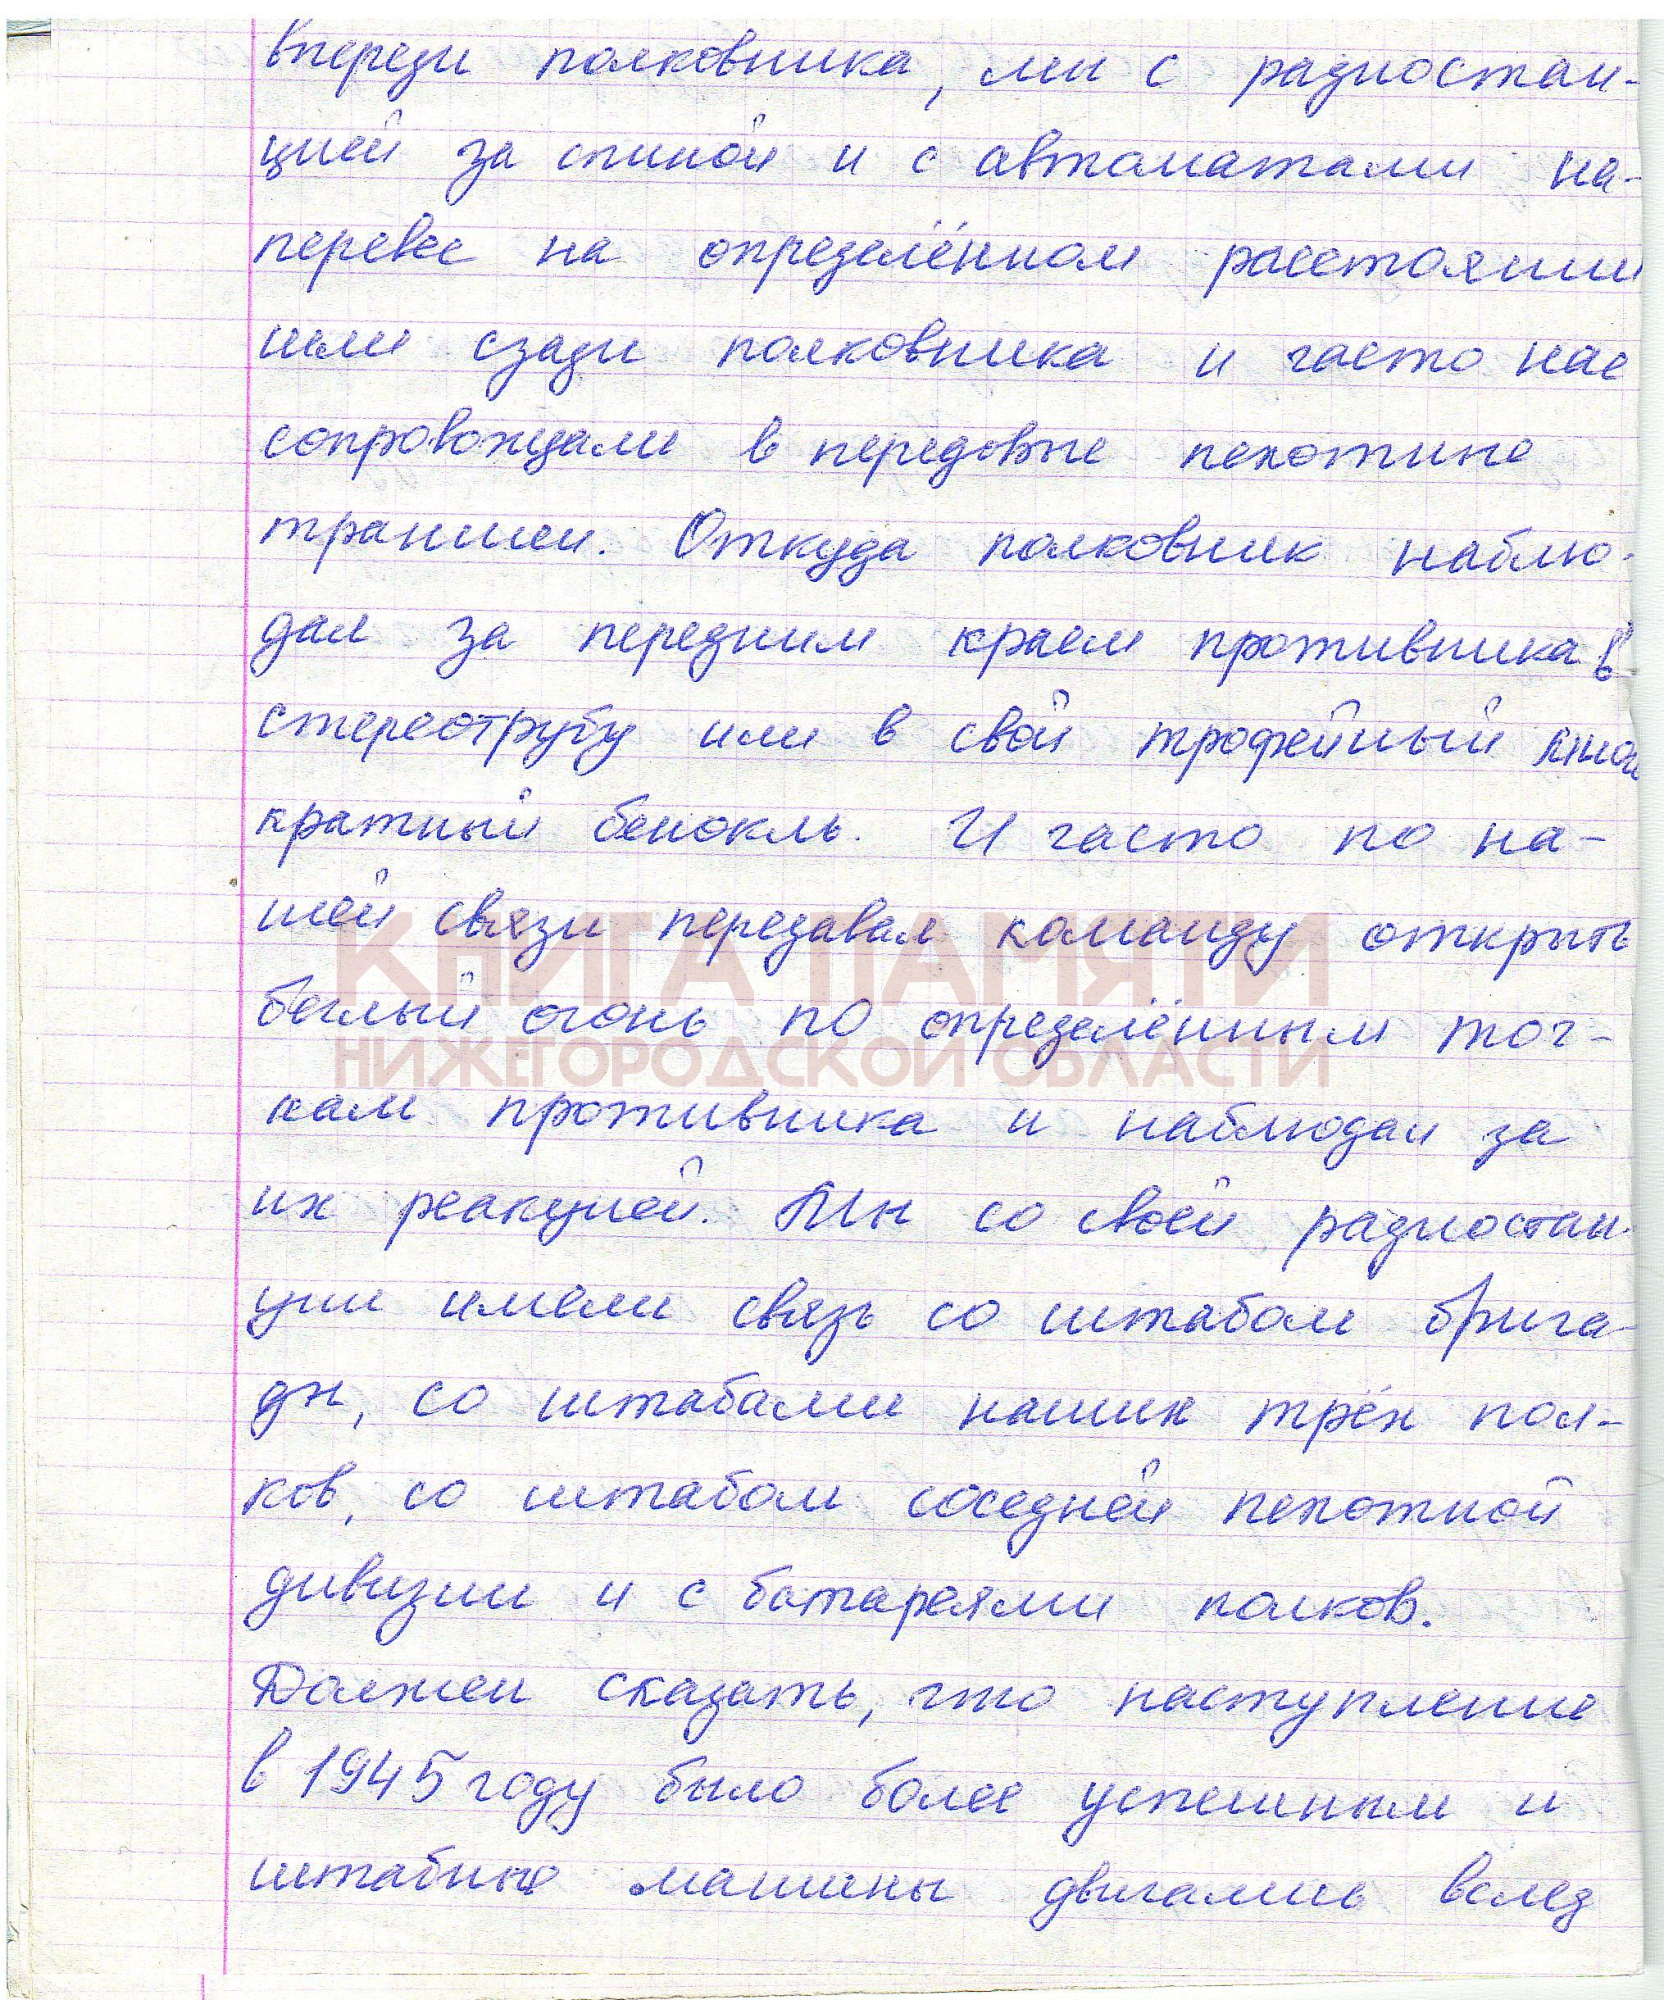 впереди полковника, мы с радиостан-
цией за спиной и с автоматами на-
перевес на определённом расстоянии
шли сзади полковника и часто нас
сопровождали в передовые пехотные
траншеи. Откуда полковник наблю-
дал за передним краем противника в
стереотрубу или в свой трофейный
кратный бенокль. И часто по на-
шей связи передавал команду открыть
беглый огонь по определённым точ-
кам противника и наблюдал за
их реакцией. Мы со своей радиостан-
ции имели связь со штабом брига-
ды, со штабами наших трёх пол-
ков, со штабом соседней пехотной
дивизии и с батареями полков.
Должен сказать, что наступление
в 1945 году было более успешным и
штабные машины двигались вслед
КНИГА ПАМЯТИ
НИЖЕГОРОДСКОЙ ОБЛАСТИ